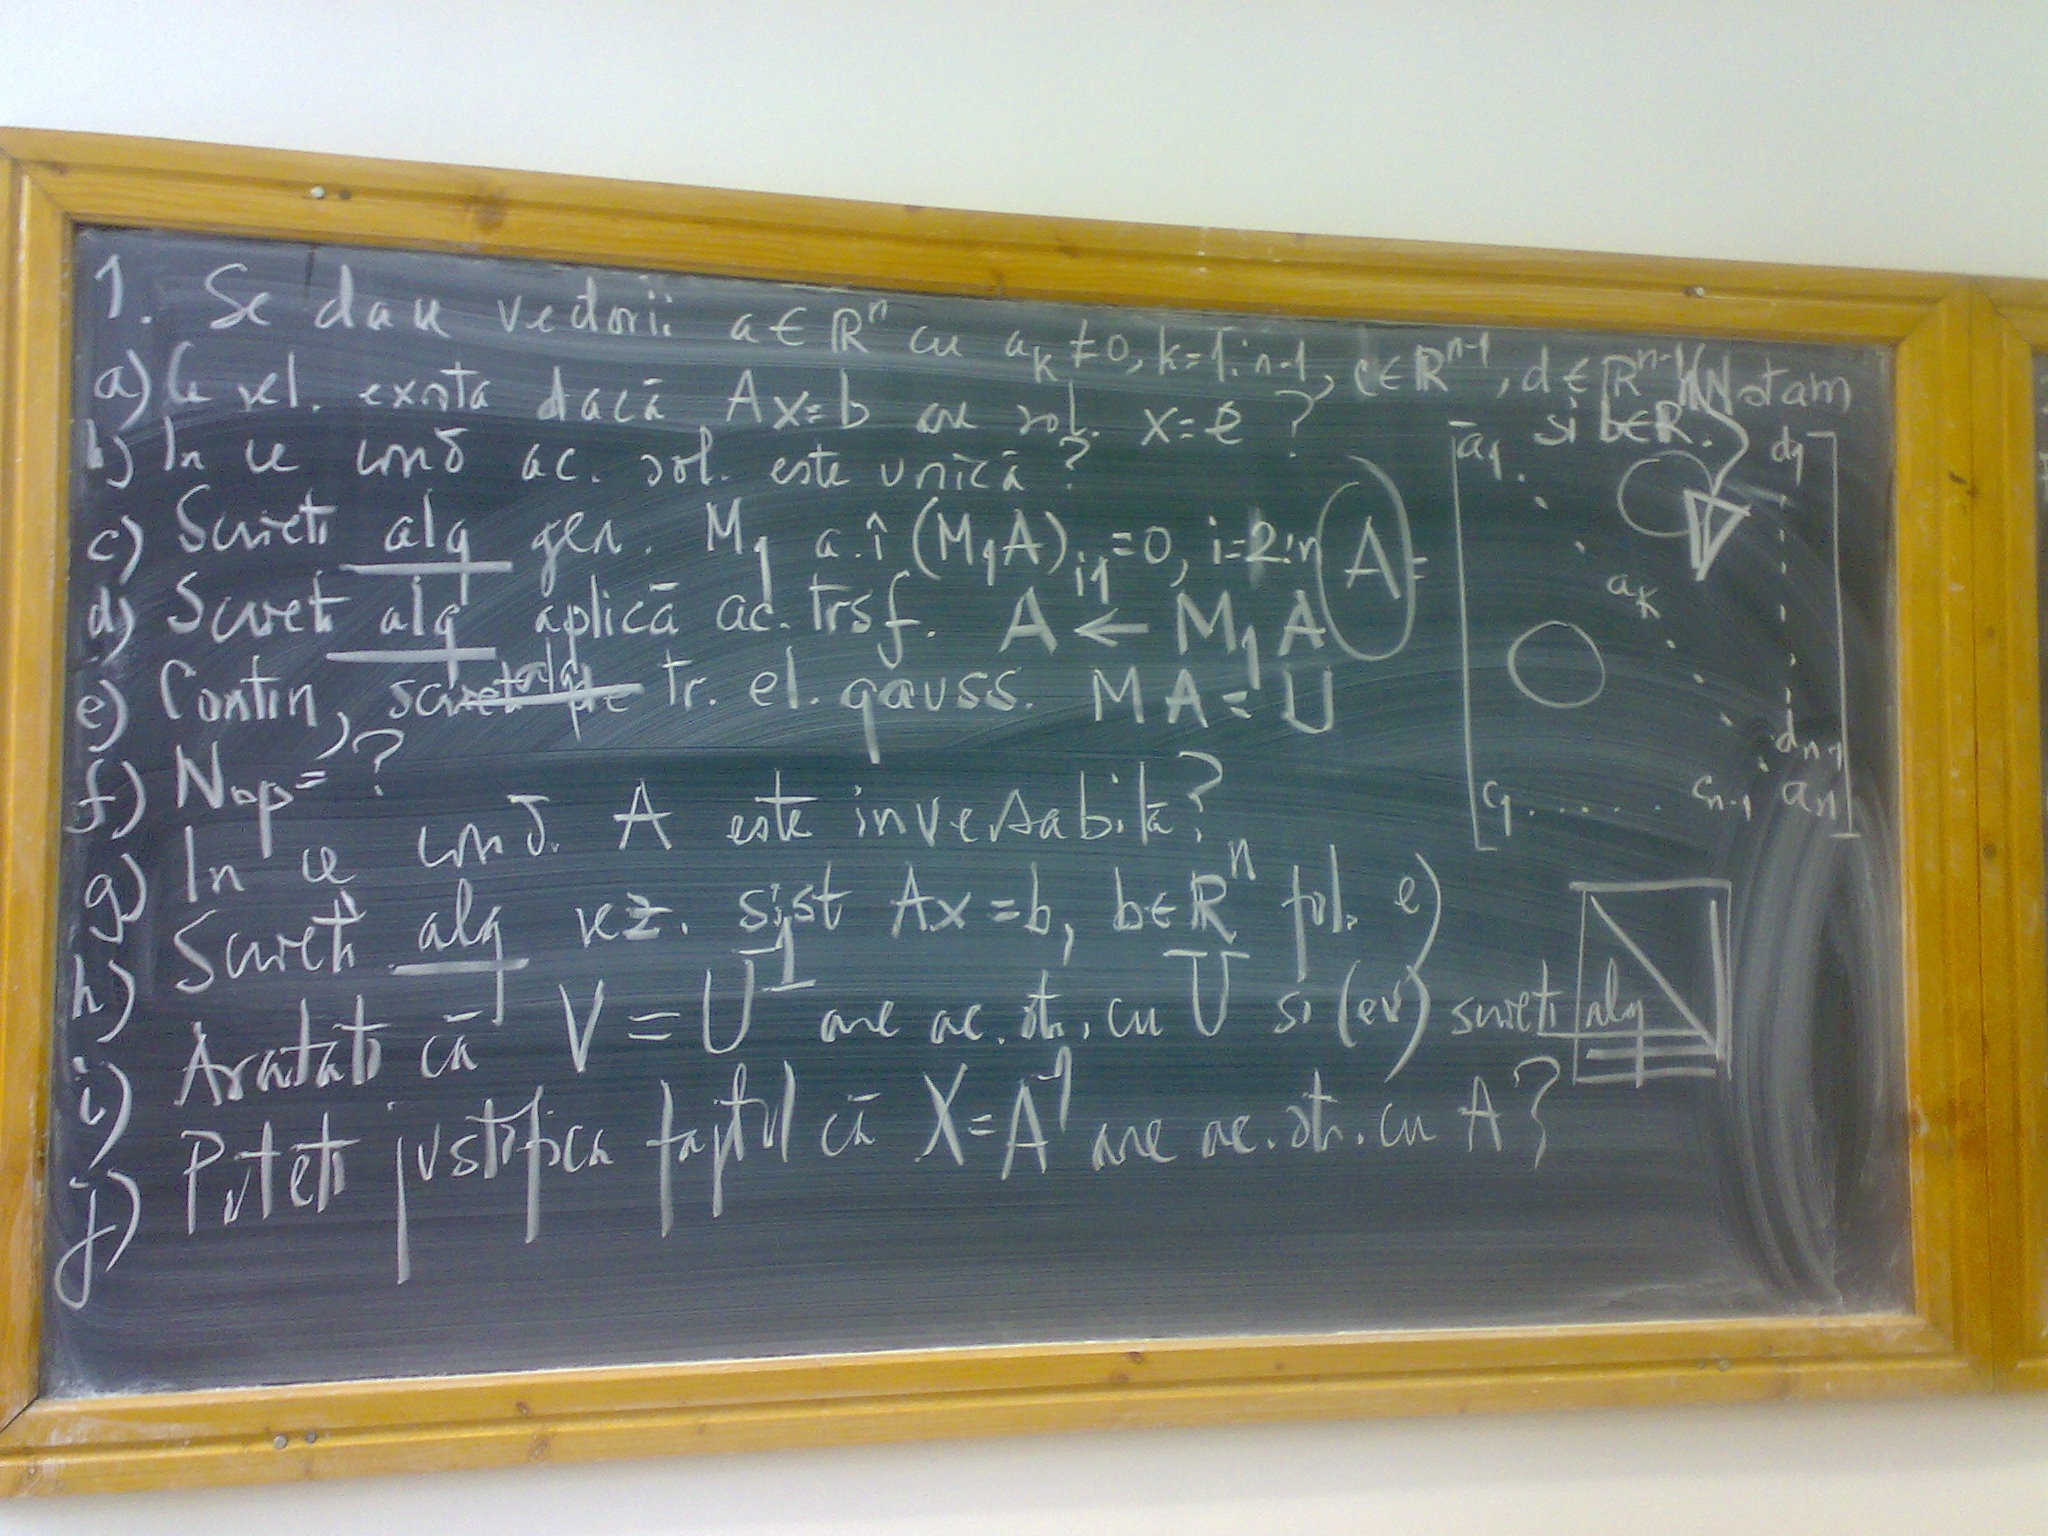 1. Se dau vectorii a∈ℝⁿ cu aₖ≠0, k=1:n-1, c∈ℝⁿ⁻¹, d∈ℝⁿ⁻¹ Notam
si b∈R.
a) Ce rel. exista dacă Ax=b are sol. x=e ?
b) In ce cond ac. sol. este unică?
c) Scrieti alg gen. M₁ a.î (M₁A)ᵢ₁=0, i=2:n
d) Scrieti alg aplică ac. trsf. A ← M₁A
e) Contin, tr. el. gauss. MA=U
f) Nop=?
g) In ce cond. A este inversabilă?
h) Scrieti alg rez. sist Ax=b, b∈ℝⁿ fol. e)
i) Aratati că V=U⁻¹ are ac. str. cu U si (ev) scrieti alg
j) Puteti justifica faptul că X=A⁻¹ are ac. str. cu A?
A=
a₁ d₁
aₖ
dₙ₋₁
c₁ ..... cₙ₋₁ aₙ